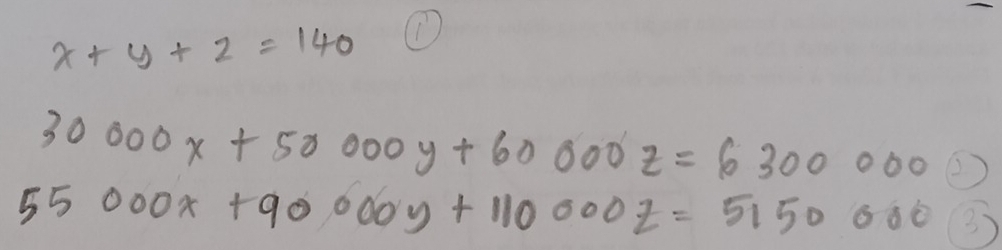 x + y + z = 140 ①
30 000x + 50 000y + 60 000z = 6 300 000 ②
55 000x + 90 000y + 110 000z = 5150 000 ③